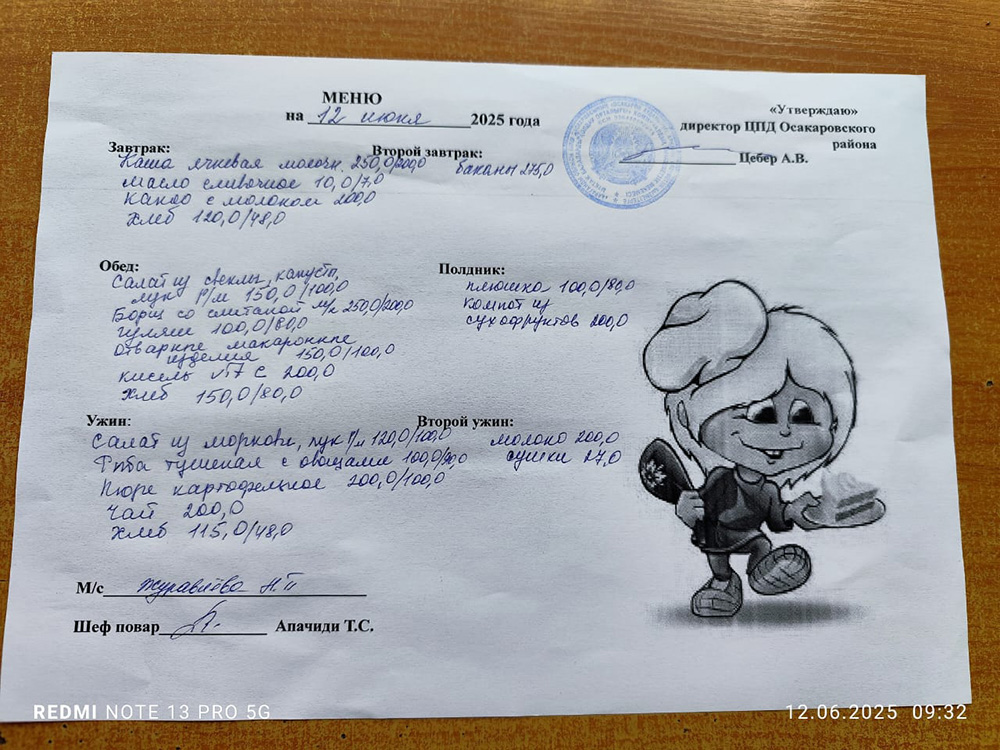 МЕНЮ
на 12 июня 2025 года
«Утверждаю»
директор ЦПД Осакаровского
района
Цебер А.В.
Завтрак:
Каша ячневая молочн. 250,0/200,0
Масло сливочное 10,0/7,0
Какао с молоком 200,0
Хлеб 120,0/48,0
Второй завтрак:
бананы 275,0
Обед:
Салат из свеклы, капусты,
лук Р/м 150,0/100,0
Борщ со сметаной м/к 250,0/200,0
гуляш 100,0/80,0
Отварные макаронные
изделия 150,0/100,0
кисель vit C 200,0
Хлеб 150,0/80,0
Полдник:
плюшка 100,0/80,0
компот из
сухофруктов 200,0
Ужин:
Салат из моркови, лук Р/м 120,0/100,0
Рыба тушеная с овощами 100,0/90,0
Пюре картофельное 200,0/100,0
Чай 200,0
Хлеб 115,0/48,0
Второй ужин:
молоко 200,0
сушки 27,0
М/с Журавлёва Н.П
Шеф повар Апачиди Т.С.
REDMI NOTE 13 PRO 5G
12.06.2025 09:32